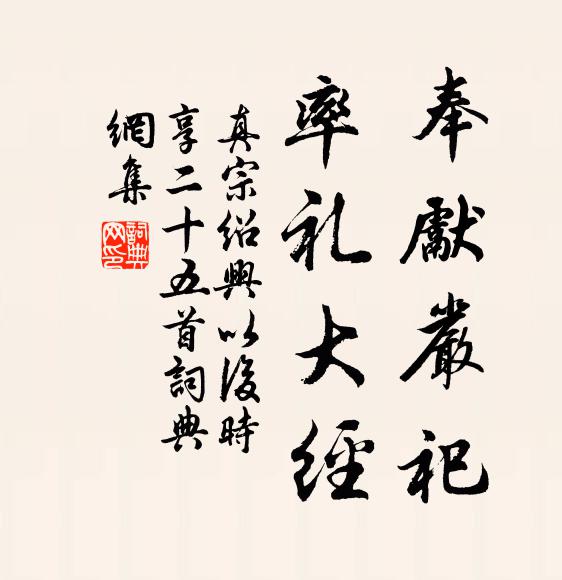 奉獻嚴祀
率礼大經
真宗绍興以後時
享二十五首詞典
網集
詞典網印